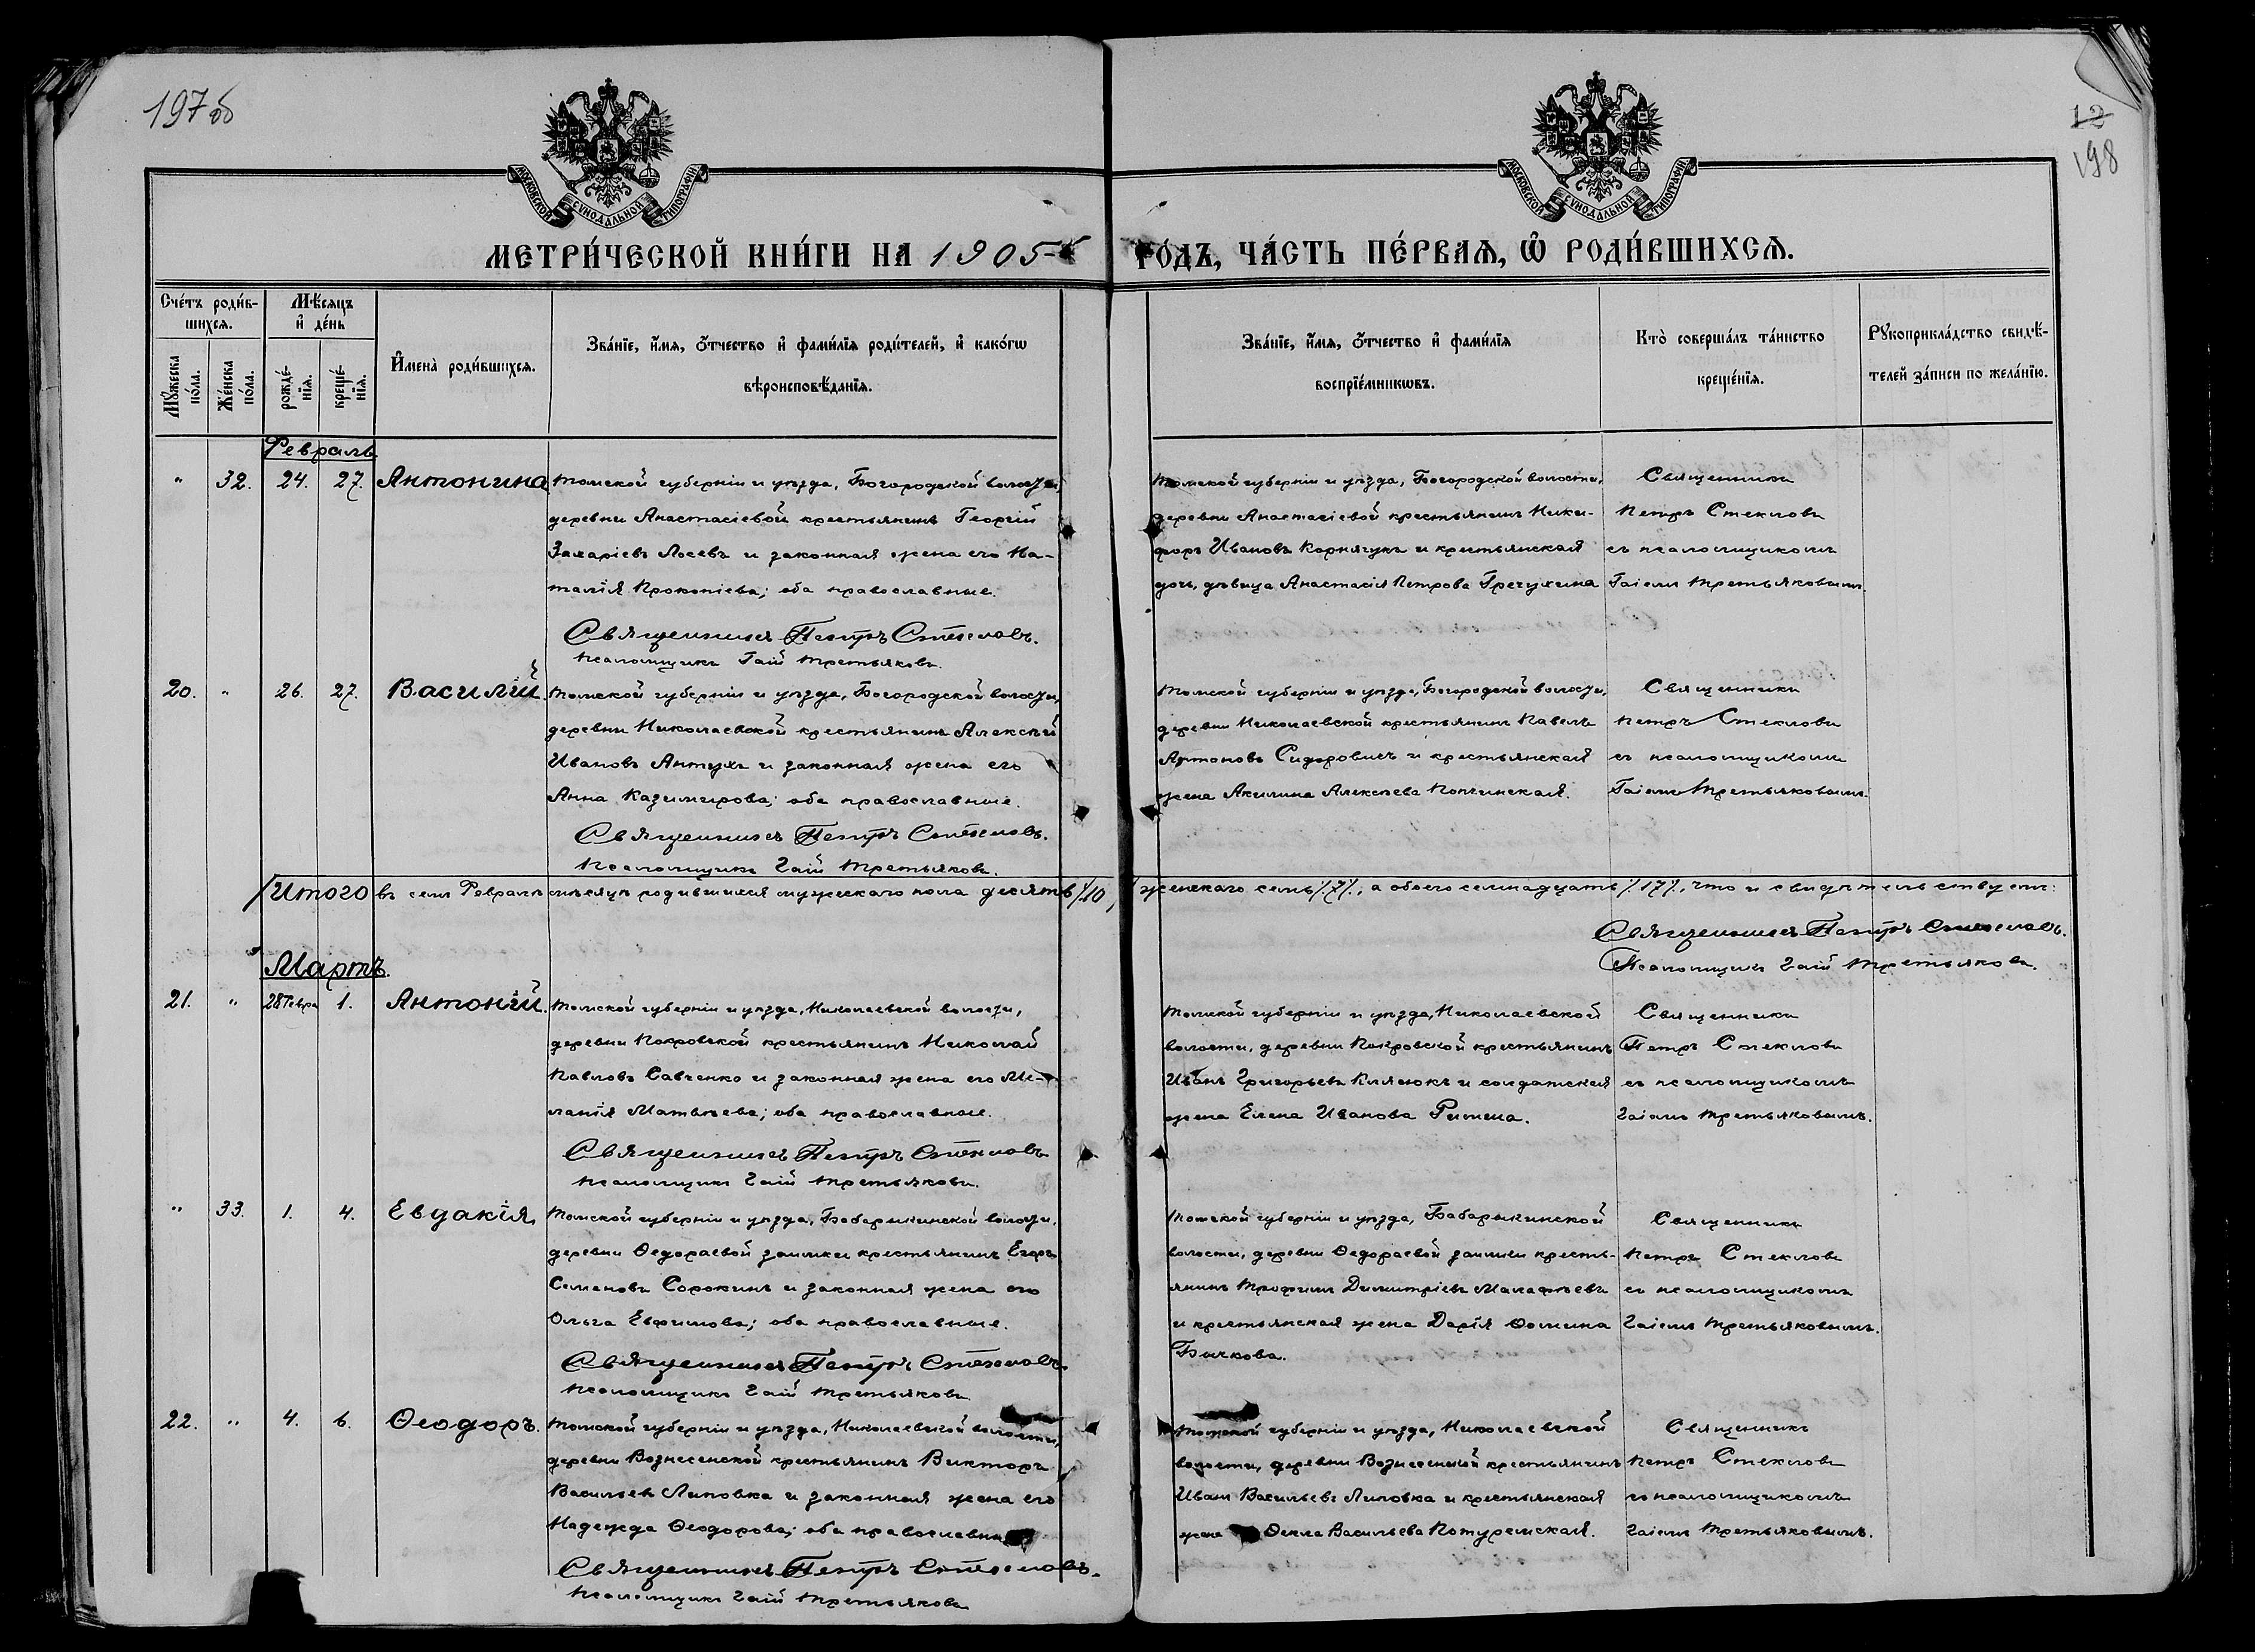 197 об
12
198
МОСКОВСКОЙ СѴНОДАЛЬНОЙ ТИПОГРАФІИ
МОСКОВСКОЙ СѴНОДАЛЬНОЙ ТИПОГРАФІИ
МЕТРИ́ЧЕСКОЙ КНИ́ГИ НА 1905 ГОДЪ, ЧА́СТЬ ПЕ́РВАЯ, Ѡ҆ РОДИ́ВШИХСЯ.
Сче́тъ роди́в-
шихся.
Мѣ́сяцъ
и҆ де́нь
Мꙋ́жеска по́ла.
Же́нска по́ла.
рожде́-нїя.
креще́-нїя.
И҆мена̀ роди́вшихся.
Зва́нїе, и҆́мя, ѻ҆́тчество и҆ фами́лїя роди́телей, и҆ како́гѡ
вѣроисповѣ́данїя.
Зва́нїе, и҆́мя, ѻ҆́тчество и҆ фами́лїя
воспрїе́мникѡвъ.
Кто̀ соверша́лъ та́инство
креще́нїя.
Рꙋкоприкла́дство свидѣ́-
телей за́писи по жела́нїю.
Февраль
" 32. 24. 27. Антонина
Томской губерніи и уѣзда, Богородской волости,
деревни Анастасіевой крестьянинъ Георгій
Захаріевъ Лосевъ и законная жена его На-
талія Прокопіева; оба православные.
Священникъ Петръ Стекловъ.
Псаломщикъ Гаій Третьяковъ.
Томской губерніи и уѣзда, Богородской волости,
деревни Анастасіевой крестьянинъ Ники-
форъ Ивановъ Корнягукъ и крестьянская
дочь, дѣвица Анастасія Петрова Гречухина
Священникъ
Петръ Стекловъ
съ псаломщикомъ
Гаіемъ Третьяковымъ.
20. " 26. 27. Василій.
Томской губерніи и уѣзда, Богородской волости,
деревни Николаевской крестьянинъ Алексѣй
Ивановъ Антухъ и законная жена его
Анна Казимирова; оба православные.
Священникъ Петръ Стекловъ.
Псаломщикъ Гаій Третьяковъ.
Томской губерніи и уѣзда, Богородской волости,
деревни Николаевской крестьянинъ Павелъ
Антоновъ Сидоровичъ и крестьянская
жена Акилина Алексѣева Копчинская.
Священникъ
Петръ Стекловъ
съ псаломщикомъ
Гаіемъ Третьяковымъ.
Итого въ семъ Февралѣ мѣсяцѣ родившихся мужескаго пола десять /10/, женскаго семь /7/, а обоего семнадцать /17/, что и свидѣтельствуемъ:
Священникъ Петръ Стекловъ.
Псаломщикъ Гаій Третьяковъ.
Мартъ.
21. " 28 Февра 1. Антоній.
Томской губерніи и уѣзда, Николаевской волости,
деревни Покровской крестьянинъ Николай
Павловъ Савченко и законная жена его Ме-
ланія Матвѣева; оба православные.
Священникъ Петръ Стекловъ
Псаломщикъ Гаій Третьяковъ.
Томской губерніи и уѣзда, Николаевской
волости, деревни Покровской крестьянинъ
Иванъ Григорьевъ Клянокъ и солдатская
жена Елена Иванова Ритена.
Священникъ
Петръ Стекловъ
съ псаломщикомъ
Гаіемъ Третьяковымъ.
" 33. 1. 4. Евдакія.
Томской губерніи и уѣзда, Бабарыкинской волости,
деревни Ѳедораевой заимки крестьянинъ Егоръ
Семеновъ Сорокинъ и законная жена его
Ольга Евфимова; оба православные.
Священникъ Петръ Стекловъ.
Псаломщикъ Гаій Третьяковъ.
Томской губерніи и уѣзда, Бабарыкинской
волости, деревни Ѳедораевой заимки кресть-
янинъ Трофимъ Димитріевъ Малафѣевъ
и крестьянская жена Дарія Ѳомина
Бычкова.
Священникъ
Петръ Стекловъ
съ псаломщикомъ
Гаіемъ Третьяковымъ.
22. " 4. 6. Ѳеодоръ.
Томской губерніи и уѣзда, Николаевской волости,
деревни Вознесенской крестьянинъ Викторъ
Васильевъ Липовка и законная жена его
Надежда Ѳеодорова; оба православны
Священникъ Петръ Стекловъ.
Псаломщикъ Гаій Третьяковъ
Томской губерніи и уѣзда, Николаевской
волости, деревни Вознесенской крестьянинъ
Иванъ Васильевъ Липовка и крестьянская
жена Ѳекла Васильева Потуремская.
Священникъ
Петръ Стекловъ
съ псаломщикомъ
Гаіемъ Третьяковымъ.